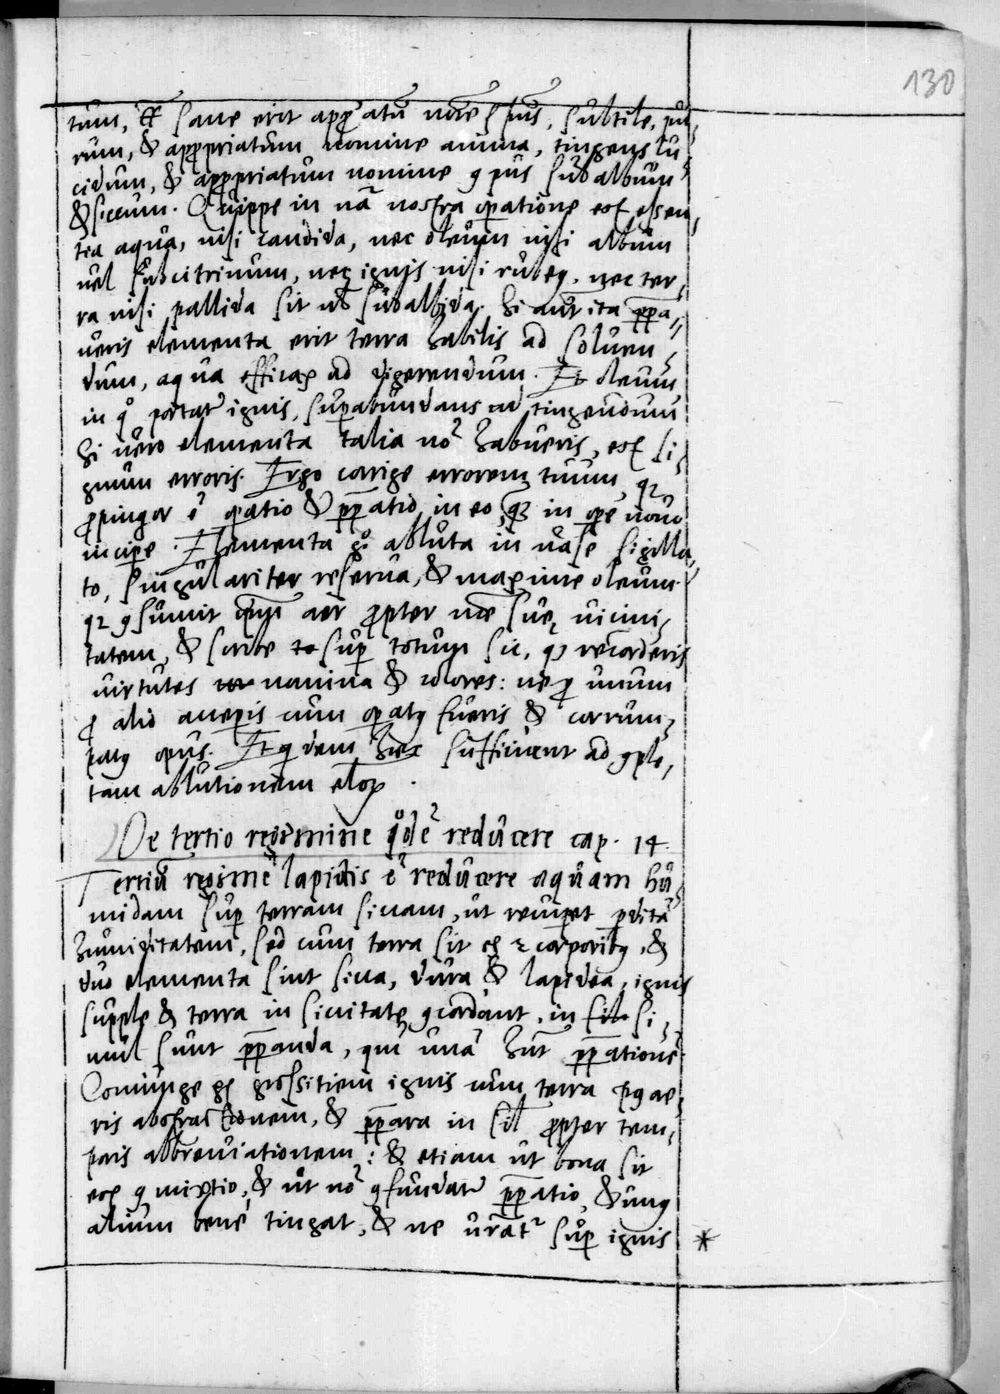 130
tum, & sane erit appropriatū nomē spūs, subtile, pu,
rum, & appropriatum nomine anima, tingens lu,
cidum, & appropriatum nomine corpus subalbum
& siccum. Quippe in nā nostra operatione est essen,
tia aqua, nisi candida, nec oleum nisi album
vel subcitrinum, neq ignis nisi rubeq. nec ter,
ra nisi pallida sit uł subalbida. Si aut ita ppa,,
veris elementa erit terra habilis ad solven,
dum, aqua efficax ad digerendum. Et oleum
in qo portatr ignis, superabundans ad tingendum
Si vero elementa talia nō habueris, est si,
gnum erroris. Ergo corrige errorem tuum, qz
propinqor ē opatio & ppatio in eo, qz in ope novo
incipe. Elementa go abluta in vase sigilla,
to, singulariter reserva, & maxime oleum.
qz 9sumit aer propter suę vicini,
tatem, & scribe super totum sic, q recorderis
virtutes nomina & colores: ne p unum
p alio acceperis cum opatq fueris & corrum,
patq opus. Et qdem hec sufficiunt ad 9ple,
tam ablutionem eloꝝ.
De tertio regimine qod ē reducere cap. 14.
Tertiū regimē lapidis ē reducere aquam hu,
midam super terram siccam, ut recuperet perditā
humiditatem, sed cum terra sit ex 2 corporibq, &
duo elementa sint sicca, dura & lapidea, ignis
supple & terra in siccitate 9cordant. in si,
mul sunt ppanda, qui unā hnt ppationē.
Coniunge gs grossitiem ignis cum terra pq ae,
ris abstractionem, & ppara in sił propter tem,
poris abbreviationem: & etiam ut bona sit
eoꝝ 9mixtio, & ut nō 9fundatr ppatio, & unq
alium benē tingat, & ne uratr super ignis *